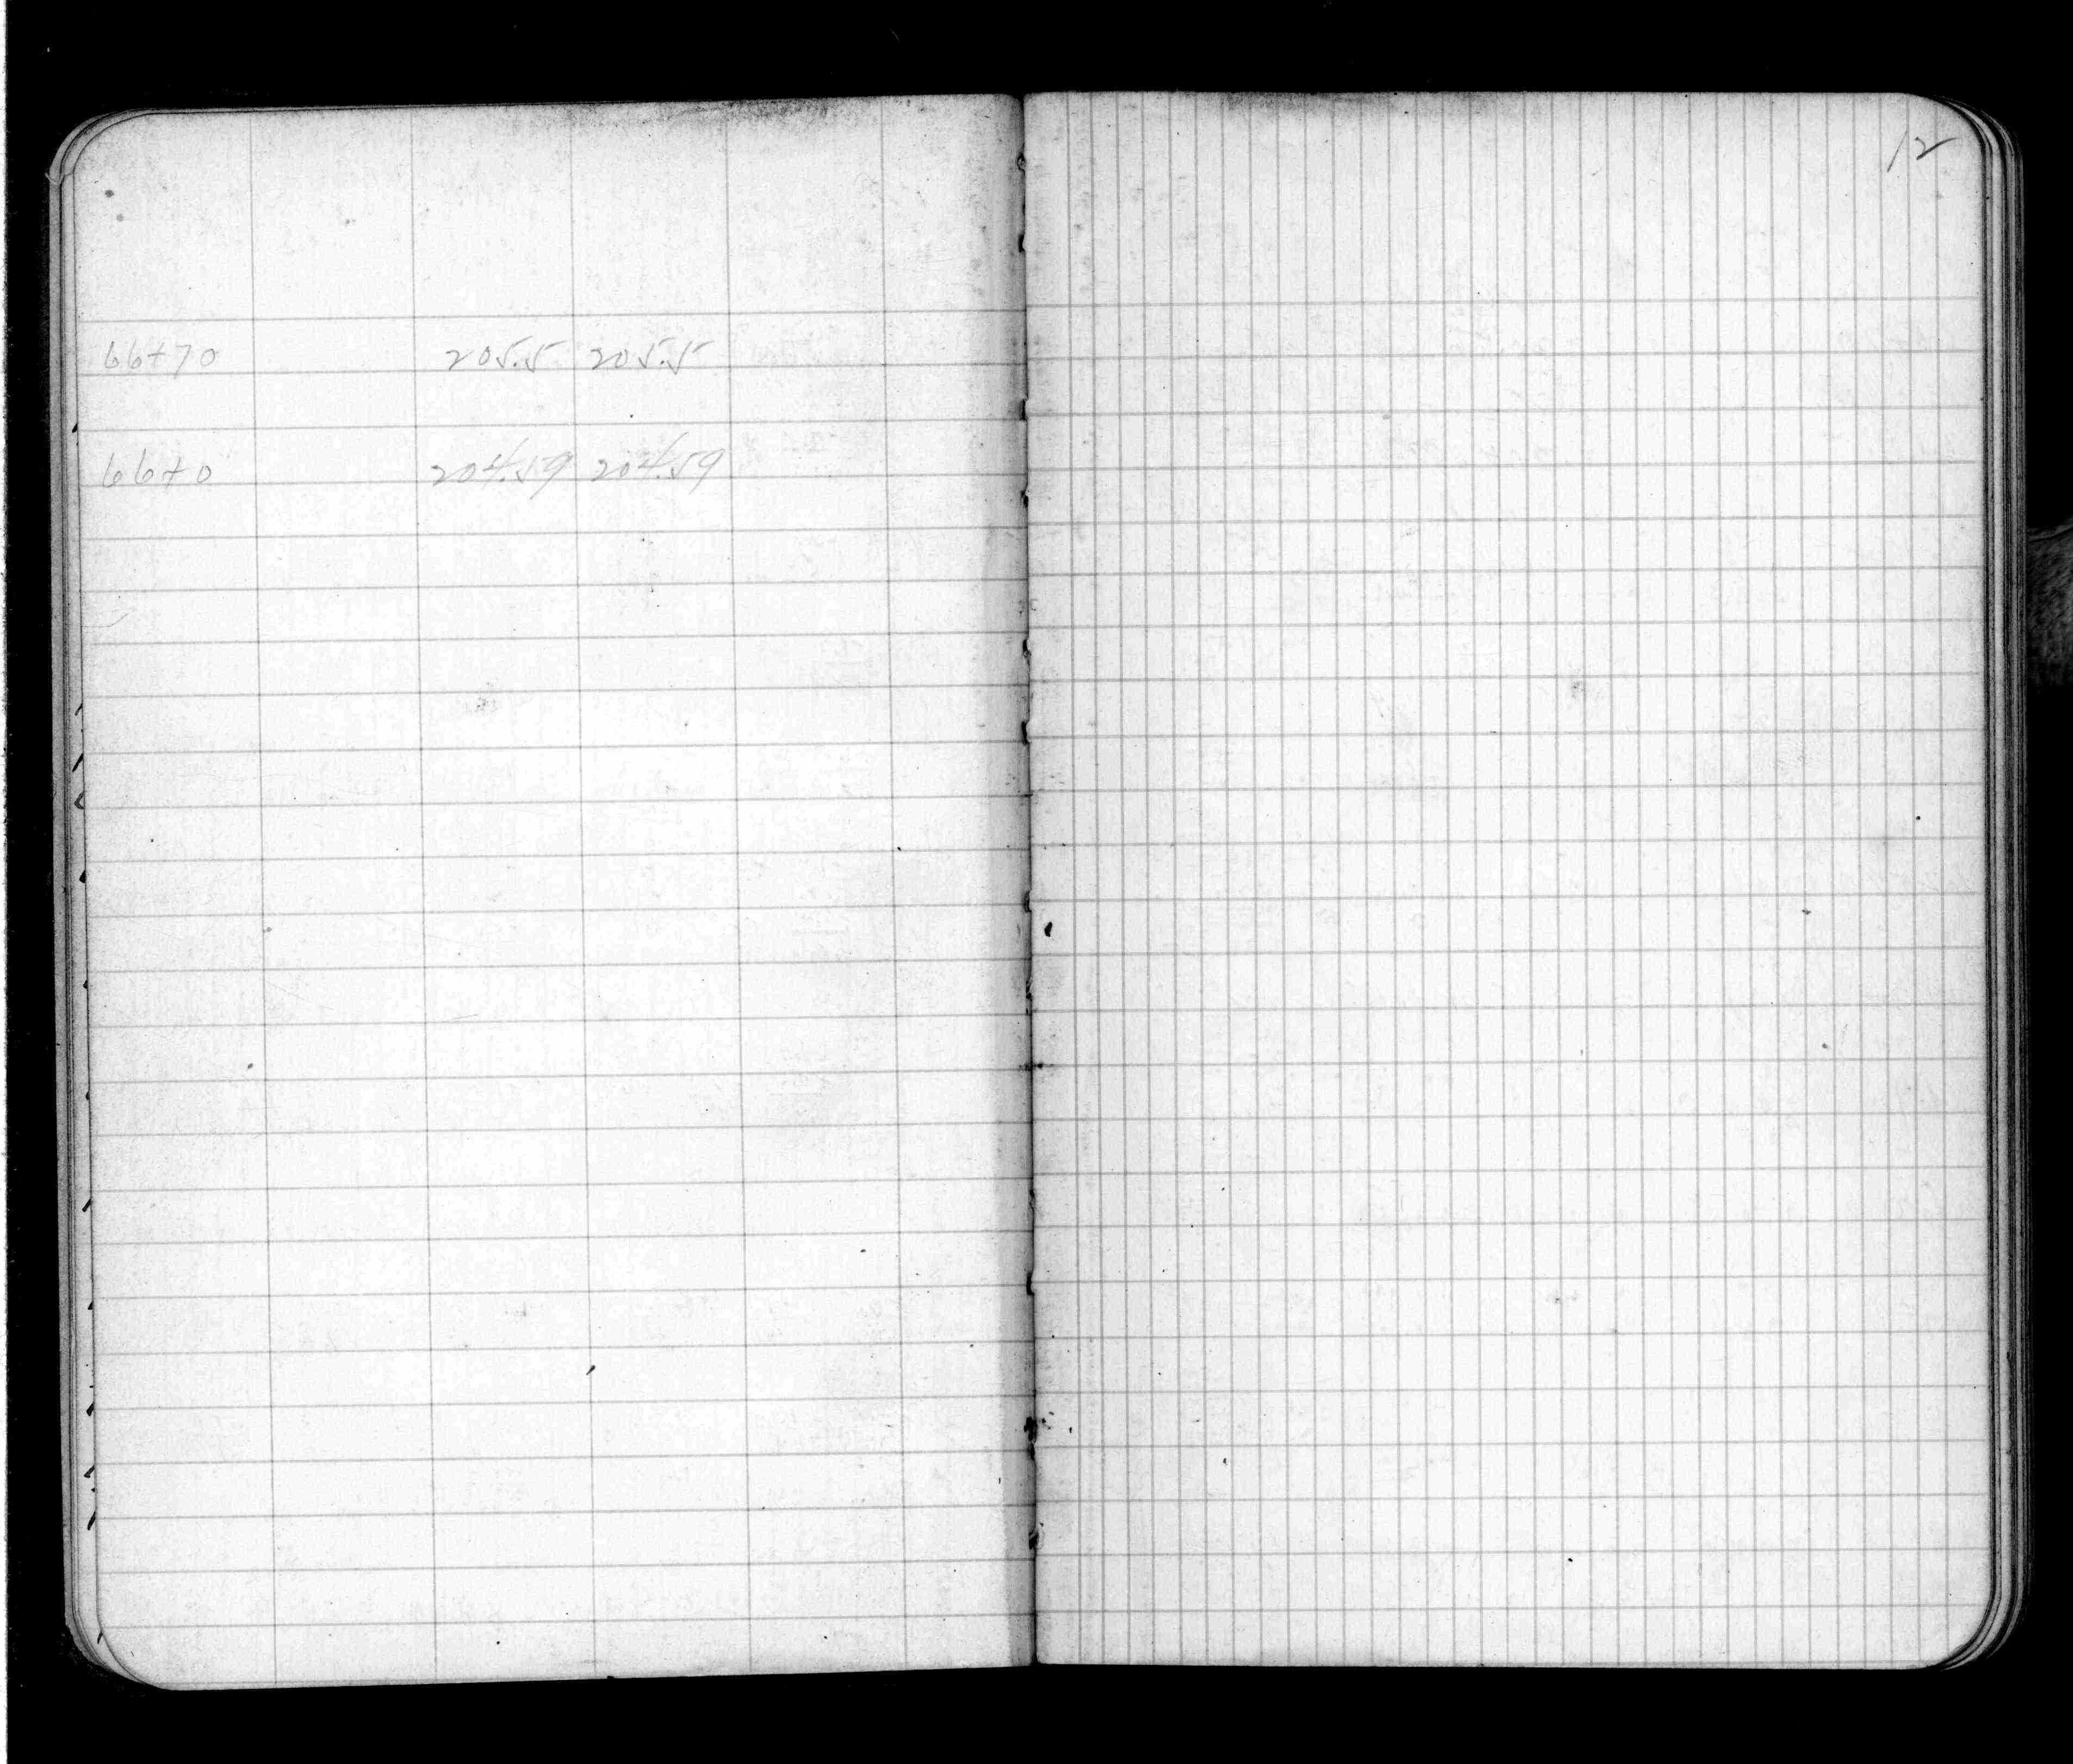 66+70 205.5 205.5
66+0 204.59 204.59
12